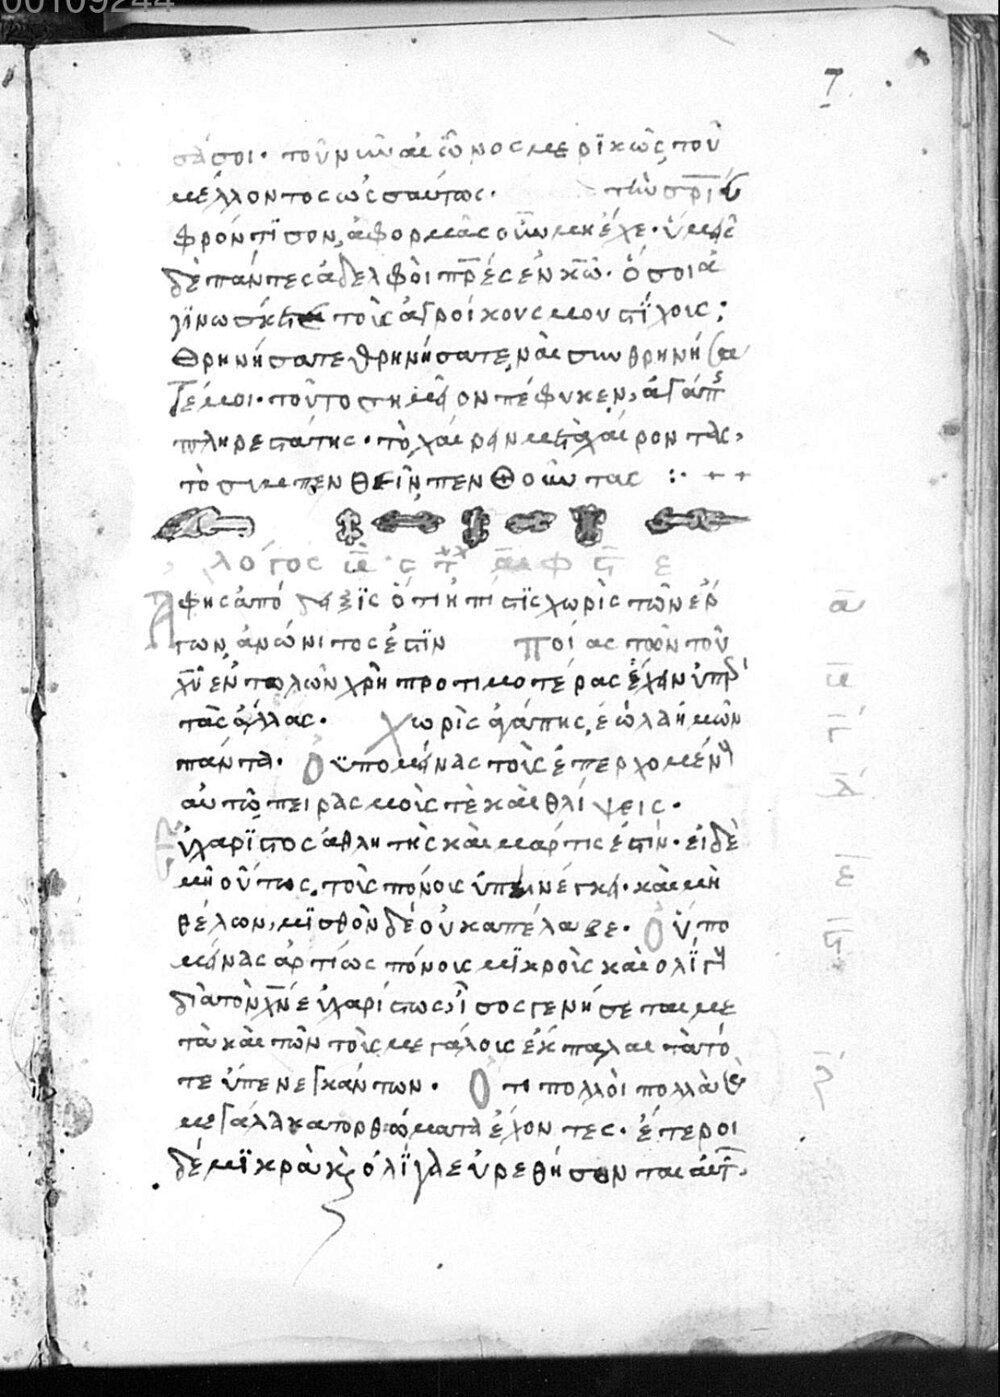 00109244
7
σάσοι· τοῦ νῦν αἰῶνος μερϊκῶς, τοῦ
μέλλοντος ὡσαύτως· τὴν σ̅ρ̅ί̅
φρόντϊσον, ἀφορμὰς οὖν μὴ ἔχε· ὑμεῖς
δὲ πάντες ἀδελφοὶ π̅ρ̅ε̅ς ἐν κ̅ω̅· ὅσοι ἀ
γϊνώσκετε τοῖς ἀγροίκους μου στίχοις;
θρηνήσατε θρηνήσατε, ναὶ συνθρηνήσα
τέ μοι· τοῦτο σημεῖον πέφυκεν, ἀγάπης
πληρεστάτης· τὸ χαίρειν μετὰ χαίροντας,
τὸ συμπενθεῖν, πενθοῦντας :· + +
λόγος
φησ ἀπό δειξϊς ὅτι ἡ πίστϊς χωρὶς τῶν ἔρ
γων, ἀνόνιτος ἐστϊν Ποίας τῶν τοῦ
χ̅υ̅ ἐντολῶν χρὴ προτιμοτέρας ἔχειν ὑπὲρ
τὰς ἄλλας· Χωρὶς ἀγάπης, ἕωλα ἡμῶν
πάντα· Ὁ ὑπομείνας τοῖς ἐπερχομένοις
αὐτῷ πειρασμοῖς τὲ καὶ θλίψεις·
εὐχαρίϊστος ἀθλητὴς καὶ μάρτις ἐστίν· εἰ δὲ
μὴ οὕτως, τοῖς πόνοις ὑπενέγκει· καὶ μὴ
θέλων, μϊσθὸν δὲ οὐκ ἀπέλαβε· Ὁ ὑπο
μείνας ἀρτίως πόνοις μϊκροῖς καὶ ολϊγοις
διὰ τὸν χ̅ν̅ εὐχαρίστως, ἶσος γενήσεται με
τὰ καὶ τῶν τοῖς μεγάλοις ἐκπαλαι τὰ τό
τε ὑπενεγκάντων· Ὅτι πολλοὶ πολλὰ καὶ
μεγάλα κατορθώματα ἔχοντες· ἕτεροι
δὲ μϊκρὰ καὶ ὀλϊγα εὑρεθήσονται αὐτ,